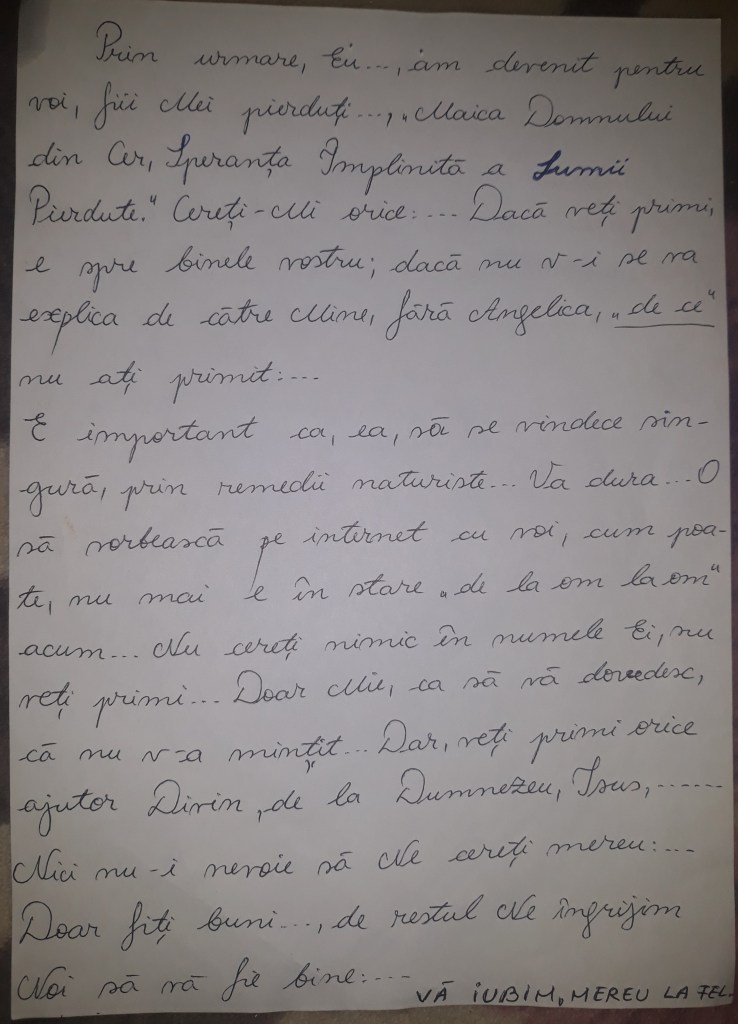 Prin urmare, Eu..., am devenit pentru
voi, fiii Mei pierduți..., „Maica Domnului
din Cer, Speranța Împlinită a Lumii
Pierdute." Cereți-Mi orice:... Dacă veți primi,
e spre binele vostru; dacă nu v-i se va
explica de către Mine, fără Angelica, „de ce"
nu ați primit:...
E important ca, ea, să se vindece sin-
gură, prin remedii naturiste... Va dura... O
să vorbească pe internet cu voi, cum poa-
te, nu mai e în stare „de la om la om"
acum... Nu cereți nimic în numele Ei, nu
veți primi... Doar Mie, ca să vă dovedesc,
că nu v-a mințit... Dar, veți primi orice
ajutor Divin, de la Dumnezeu, Isus, ......
Nici nu-i nevoie să Ne cereți mereu:...
Doar fiți buni..., de restul Ne îngrijim
Noi să vă fie bine:...
VĂ IUBIM, MEREU LA FEL.